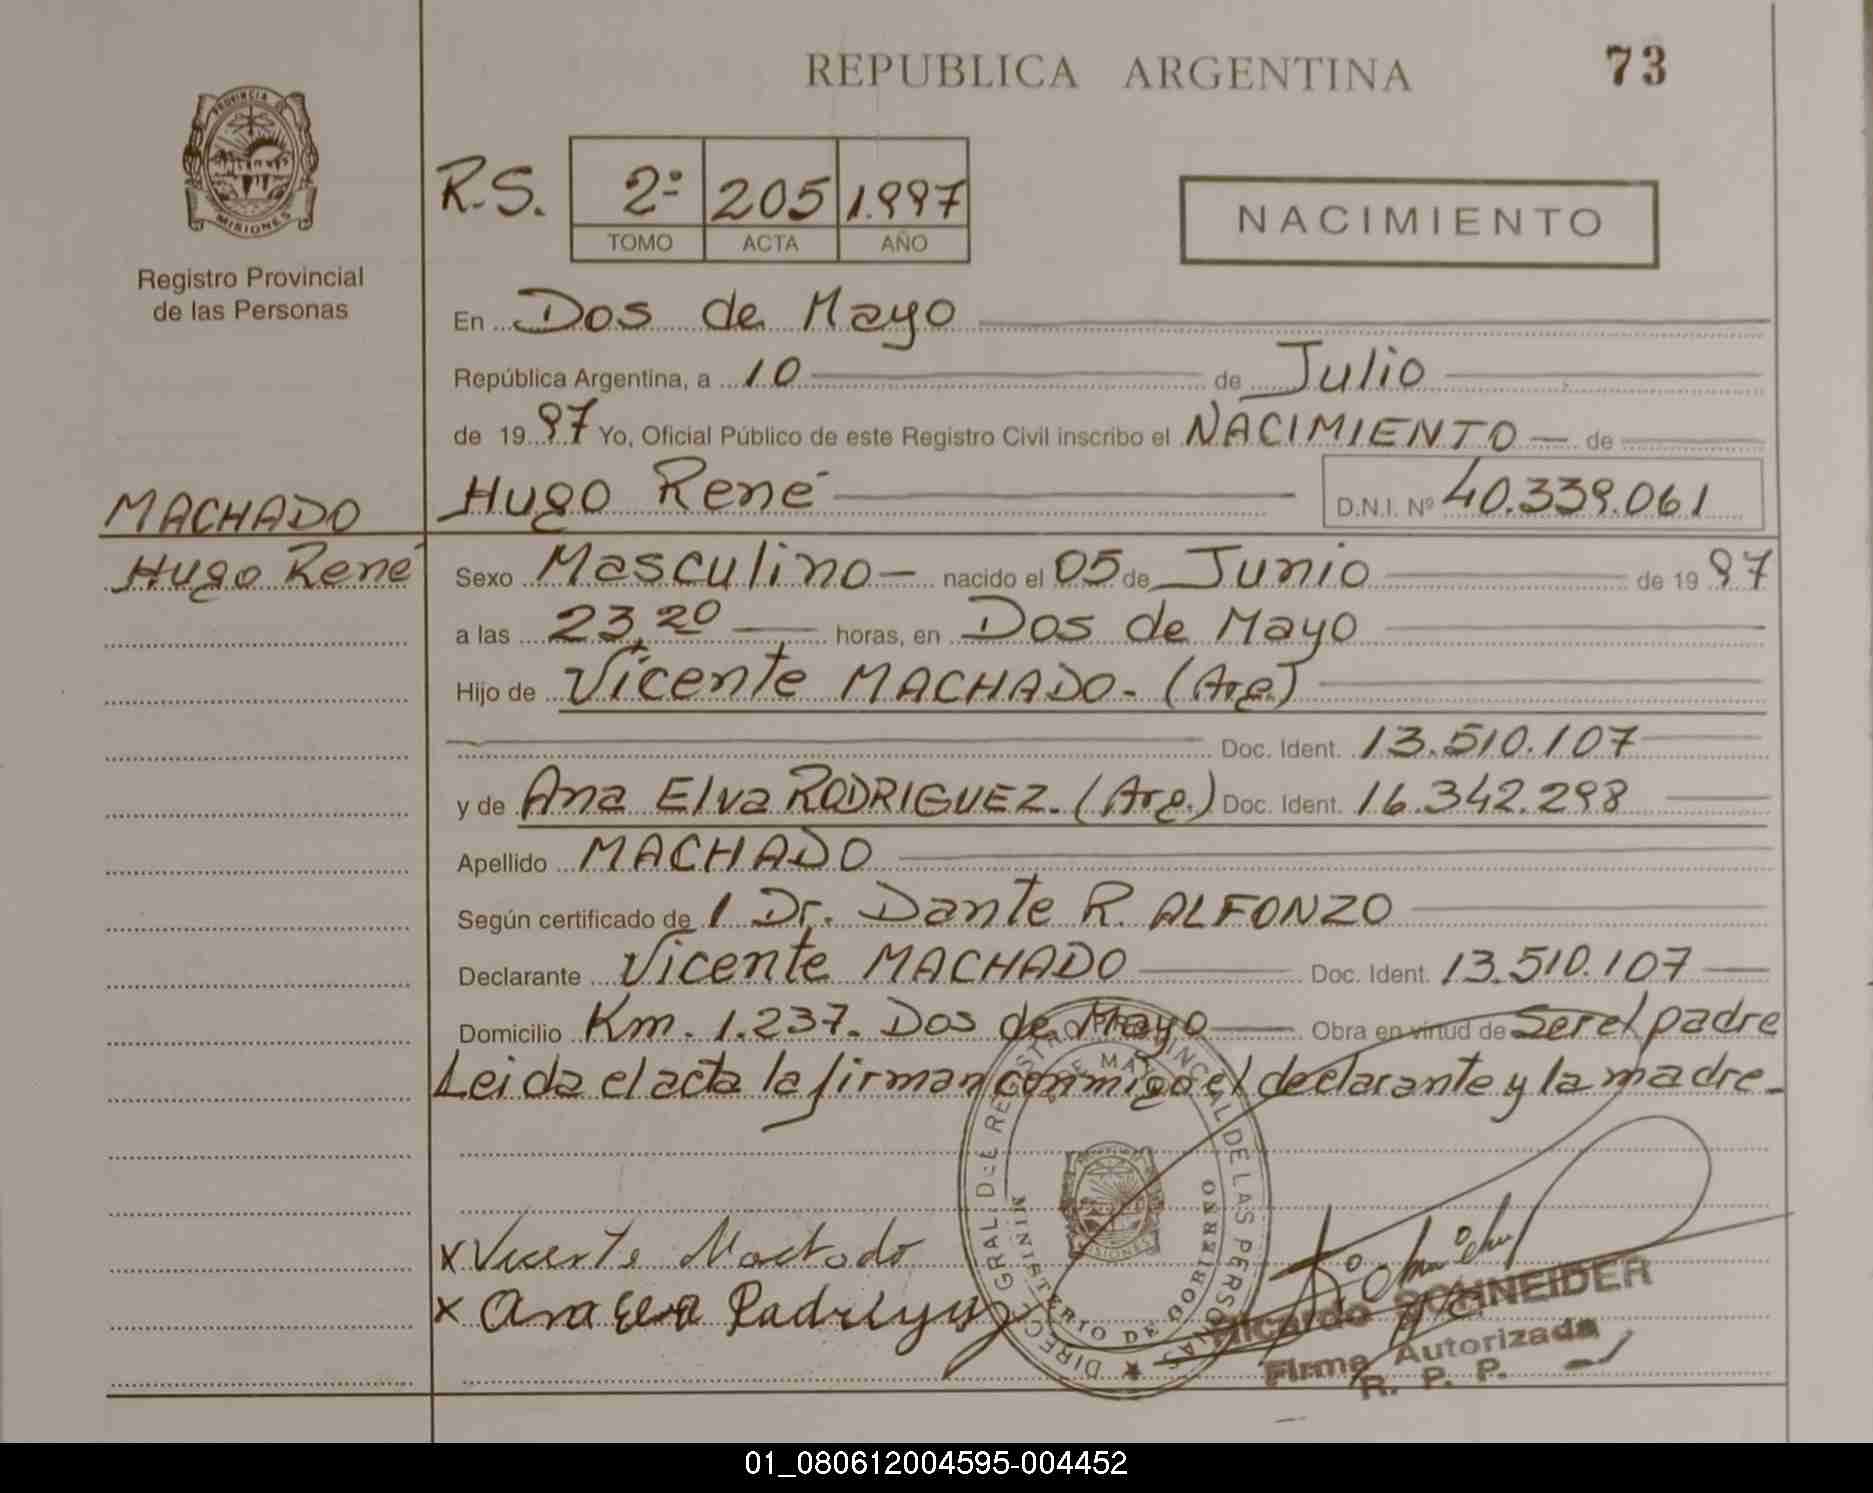 REPUBLICA ARGENTINA
73
PROVINCIA DE
MISIONES
Registro Provincial
de las Personas
R.S.
2º 205 1.997
TOMO ACTA AÑO
NACIMIENTO
En Dos de Mayo
República Argentina, a 10 de Julio
de 1997 Yo, Oficial Público de este Registro Civil inscribo el NACIMIENTO de
MACHADO
Hugo René
Hugo René D.N.I. Nº 40.339.061
Sexo Masculino nacido el 05 de Junio de 1997
a las 23,20 horas, en Dos de Mayo
Hijo de Vicente MACHADO - (Arg)
Doc. Ident. 13.510.107
y de Ana Elva RODRIGUEZ. (Arg.) Doc. Ident. 16.342.298
Apellido MACHADO
Según certificado de 1 Dr. Dante R. ALFONZO
Declarante Vicente MACHADO Doc. Ident. 13.510.107
Domicilio Km. 1.237. Dos de Mayo Obra en virtud de Ser el padre
Leida el acta la firman conmigo el declarante y la madre.
DIREC. GRAL. DEL REGISTRO PROVINCIAL DE LAS PERSONAS
MINISTERIO DE GOBIERNO
MISIONES
x Vicente Machado
x Ana Elva
Ricardo SCHNEIDER
Firma Autorizada
R. P. P.
01_080612004595-004452